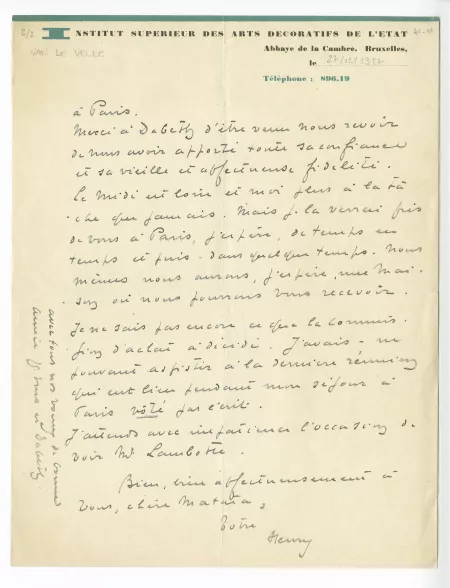 2/2
VAN DE VELDE
INSTITUT SUPERIEUR DES ARTS DECORATIFS DE L'ETAT
Abbaye de la Cambre. Bruxelles,
le 27/12/1927
Téléphone : 896.19
à Paris.
Merci à Dabetty d'être venu nous revoir
de nous avoir apporté toute sa confiance
et sa vieille et affectueuse fidelité.
Le Midi est loin et moi plus à la tâ
che que jamais. Mais je la verrai près
de vous à Paris, j'espère, de temps en
temps et puis dans quelque temps. Nous
mêmes nous aurons, j'espère, une mai-
son où nous pourrons vous recevoir.
Je ne sais pas encore ce que la commis-
sion d'achat a décidé. J'avais - ne
pouvant assister à la dernière réunion
qui eut lieu pendant mon séjour à
Paris voté par écrit.
J'attends avec impatience l'occasion de
voir Mr Lambotte.
Bien, bien affectueusement à
vous, chère
Votre
Henry
avec tous nos voeux de bonne
année vous et Dabetty.